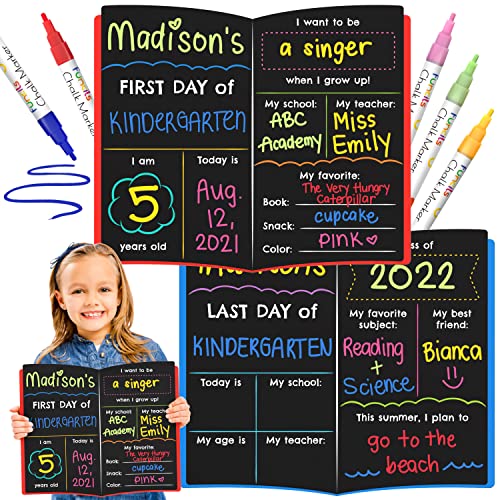 Madison's
FIRST DAY of
KINDERGARTEN
I am
5
years old
Today is
Aug.
12,
2021
I want to be
a singer
when I grow up!
My school:
ABC
Academy
My teacher:
Miss
Emily
My favorite:
Book: The Very Hungry
Caterpillar
Snack: cupcake
Color: PINK
Chalk Marker
Chalk Marker
Chalk Marker
Chalk Marker
Chalk Marker
LAST DAY of
KINDERGARTEN
Today is
My school:
My age is
My teacher:
2022
My favorite
subject:
Reading
+
Science
My best
friend:
Bianca
This summer, I plan to
go to the
beach
Madison's
FIRST DAY of
KINDERGARTEN
I am
5
years old
Today is
Aug.
12,
2021
I want to be
a singer
when I grow up!
My school:
ABC
Academy
My teacher:
Miss
Emily
My favorite:
Book: The Very Hungry
Caterpillar
Snack: cupcake
Color: PINK